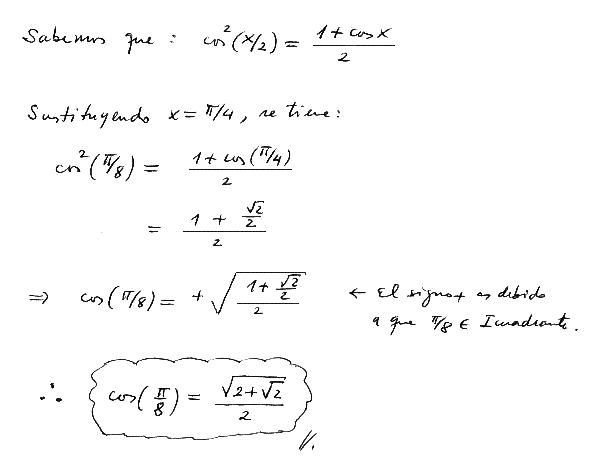 Sabemos que : cos²(x/2) = (1 + cos x)/2
Sustituyendo x = π/4, se tiene:
cos²(π/8) = (1 + cos(π/4))/2
= (1 + √2/2)/2
⇒ cos(π/8) = + √((1 + √2/2)/2) ← El signo + es debido
a que π/8 ∈ I cuadrante.
∴ cos(π/8) = √(2+√2)/2